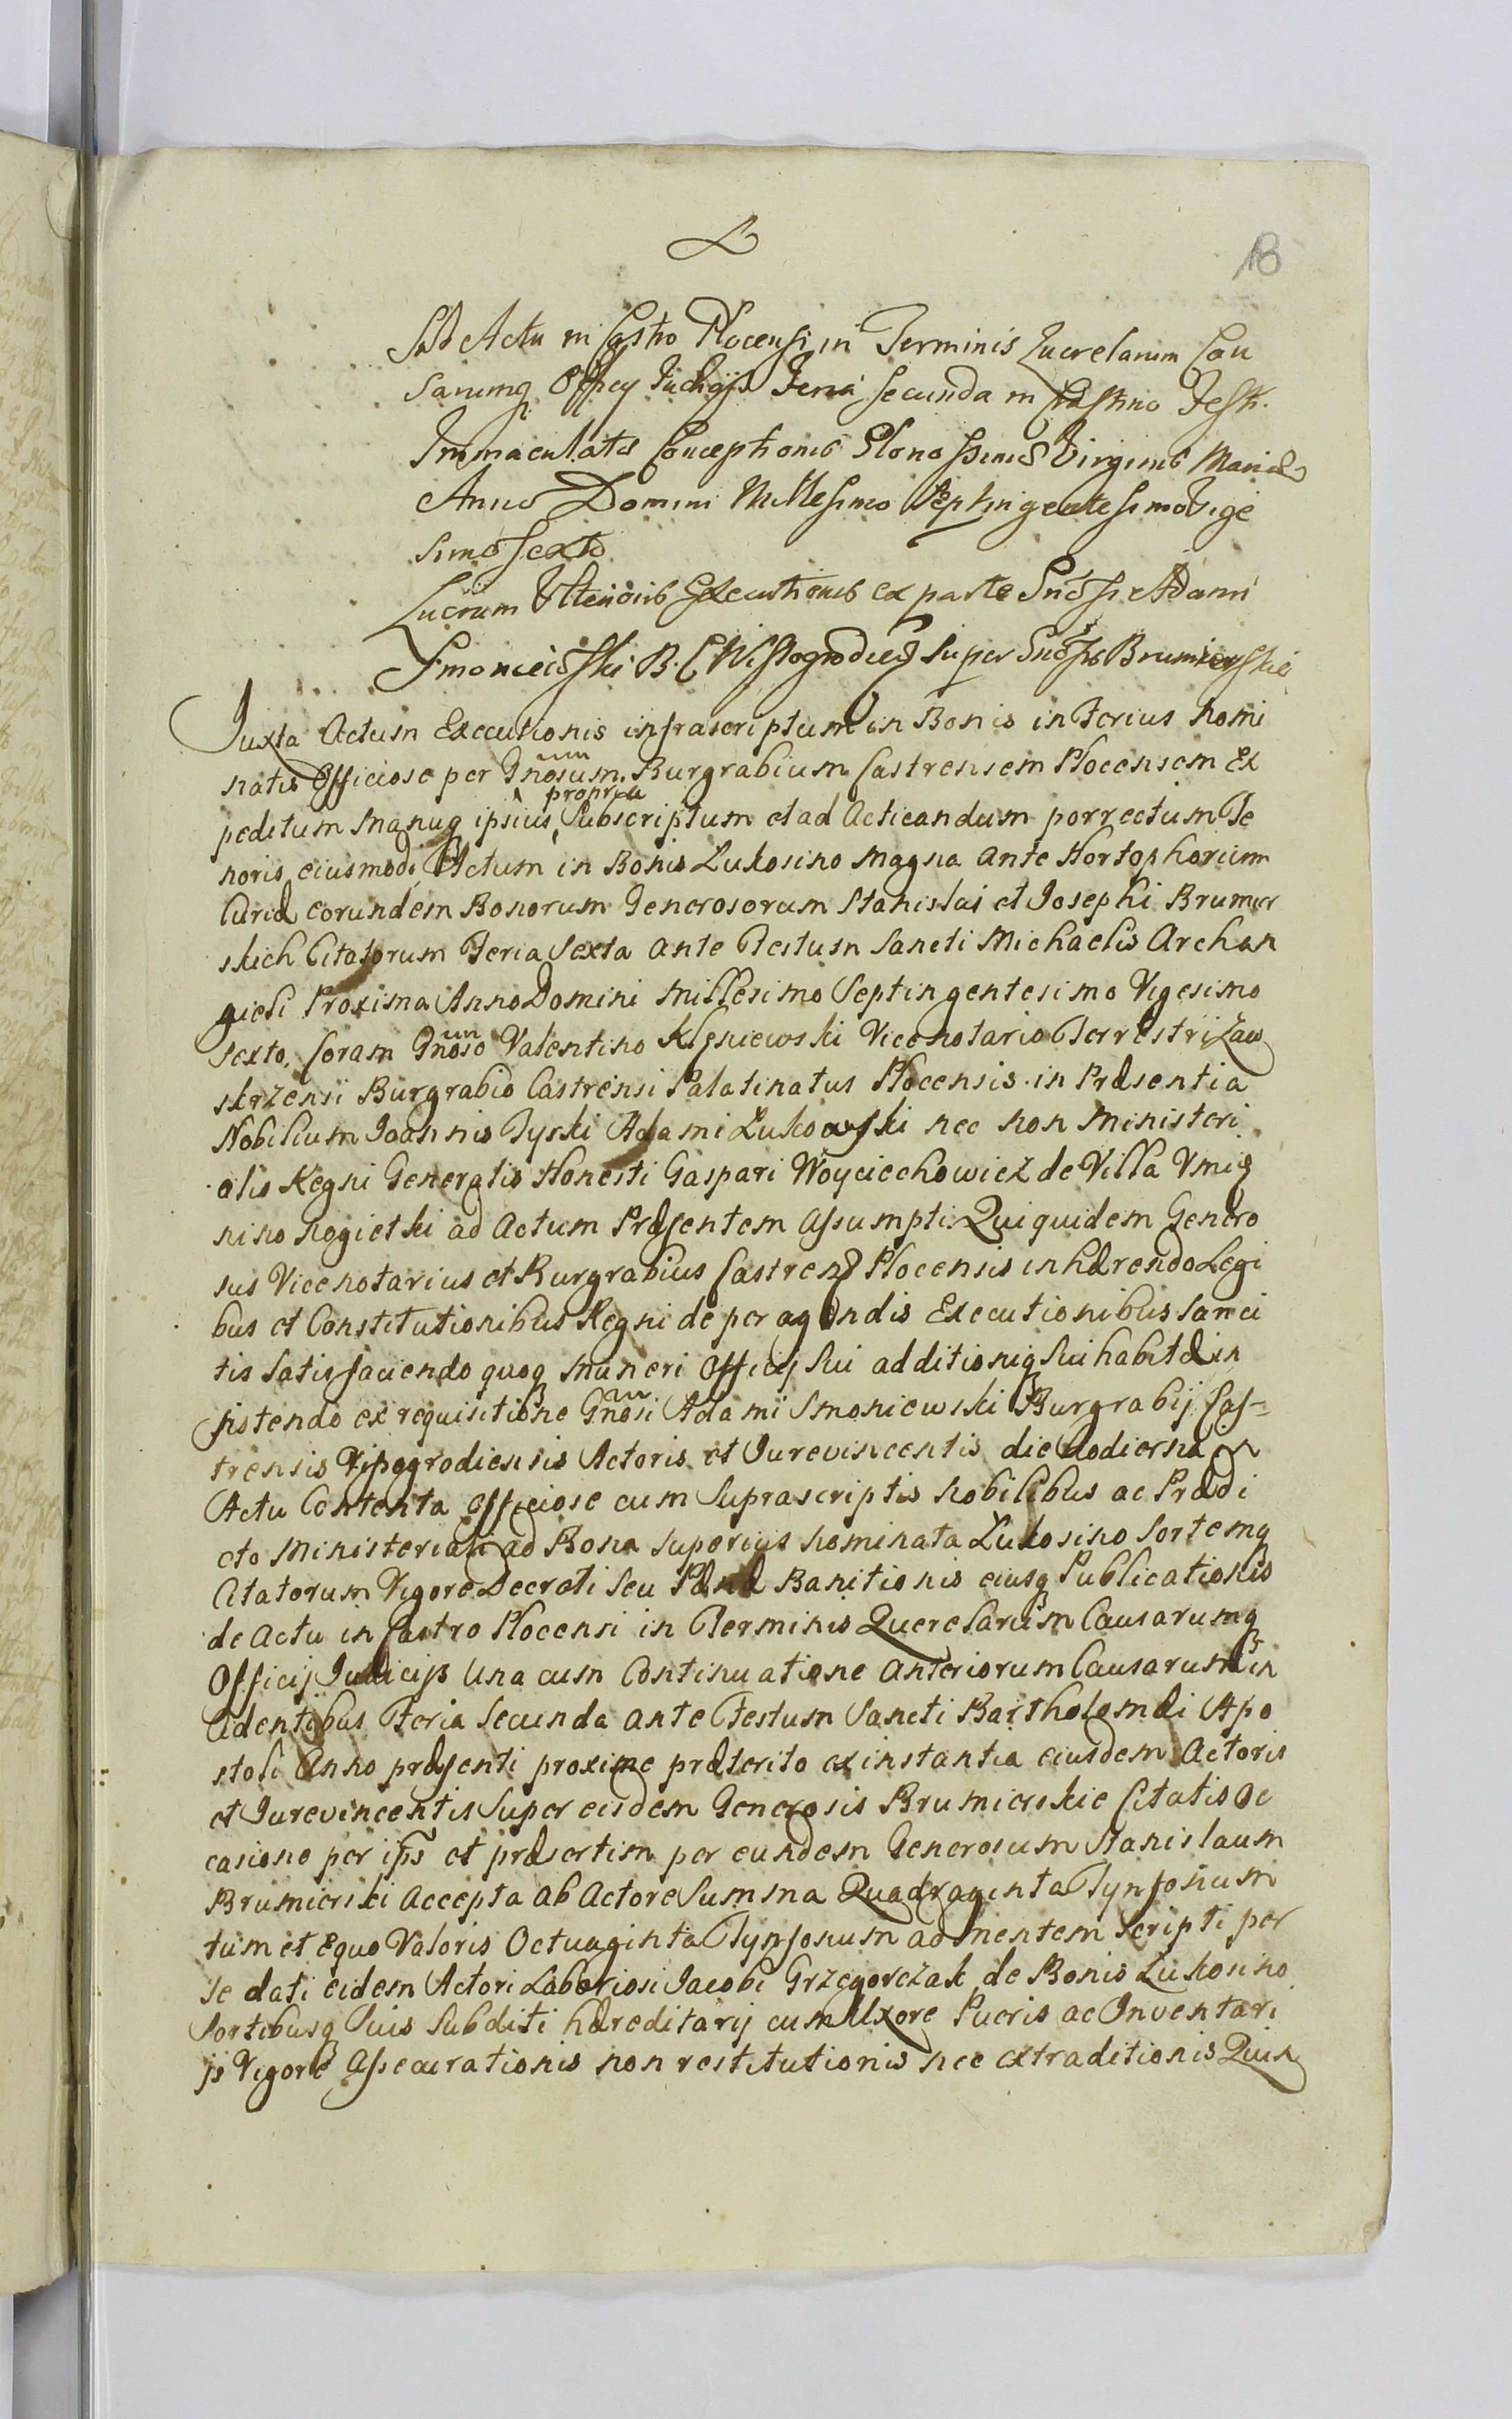 18
Sub Actu in Castro Plocensi in Terminis Querelarum Cau
sarumq Officij Judicijs Feria secunda in Crastino Festi
Immaculatae Conceptionis Gloriossimae Virginis Mariae
Anno Domini Millesimo Septingentesimo Vige
simo sexto
Lucrum Ulterioris Executionis ex parte Gnosi Adami
Smoniewski B. C. Wissogrodien super Gnosis Brumierskie
Juxta Actum Executionis infrascriptum in Bonis inferius nomi
natis Officiose per Gnosum Burgrabium Castrensem Plocensem Ex
peditum Manuq ipsius propria Subscriptum et ad Acticandum porrectum Te
noris eiusmodi Actum in Bonis Lukosino Magna ante Hortophorium
Curiae eorundem Bonorum Generosorum Stanislai et Josephi Brumier
skich Citatorum Feria Sexta ante Festum Sancti Michaelis Archan
gieli Proxima Anno Domini Millesimo Septingentesimo Vigesimo
Sexto. Coram Gnoso Valentino Kłeniewski Vicenotario Terrestri Zaw
skrzensi Burgrabio Castrensi Palatinatus Plocensis in Praesentia
Nobilium Joannis Tyski Adami Lukowski nec non Ministeri
alis Regni Generalis Honesti Gaspari Woyciechowicz de Villa Vmię
nino Rogietki ad Actum Praesentem Assumpti Qui quidem Genero
sus Vicenotarius et Burgrabius Castren Plocensis inhaerendo Legi
bus et Constitutionibus Regni de peragendis Executionibus Sanci
tis Satisfaciendo quoq Muneri Officij Sui additioniq Sui habitae in
sistendo ex requisitione Gnosi Adami Smoniewski Burgrabij Cas=
trensis Vissogrodiensis Actoris et Jurevincentis die hodierna
Actu Contenta Officiose cum Suprascriptis Nobilibus ac Praedi
cto Ministeriali ad Bona Superius Nominata Lukosino Sortemq
Citatorum Vigore Decreti Seu Paenae Banitionis eiusq Publicationis
de Actu in Castro Plocensi in Terminis Querelarum Causarumq
Officij Judicijs Una cum Continuatione Anteriorum Causarum in
Cidentibus Feria Secunda ante Festum Sancti Bartholomaei Apo
stoli Anno praesenti proxime praeterito ex instantia eiusdem Actoris
et Jurevincentis Super eisdem Generosis Brumierskie Citatis Oc
casione per ips et praesertim per eundem Generosum Stanislaum
Brumierski Accepta ab Actore Summa Quadraginta Tynfonum
tum et Equo Valoris Octuaginta Tynfonum ad mentem Scripti per
Se dati eidem Actori Laboriosi Jacobi Grzegorczak de Bonis Lukosino
Sortibusq Suis Subditi haereditarij cum Uxore Pueris ac Inventari
js Vigore Assecurationis non restitutionis nec extraditionis Quin